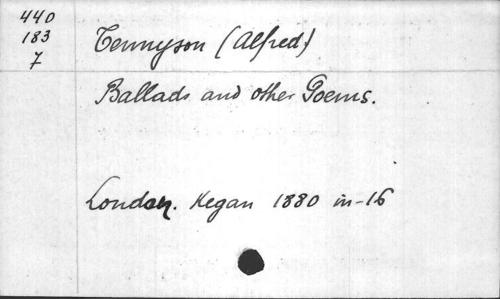 440
183
7
Tennyson (Alfred)
Ballads and other Poems.
London. Kegan 1880 in-16